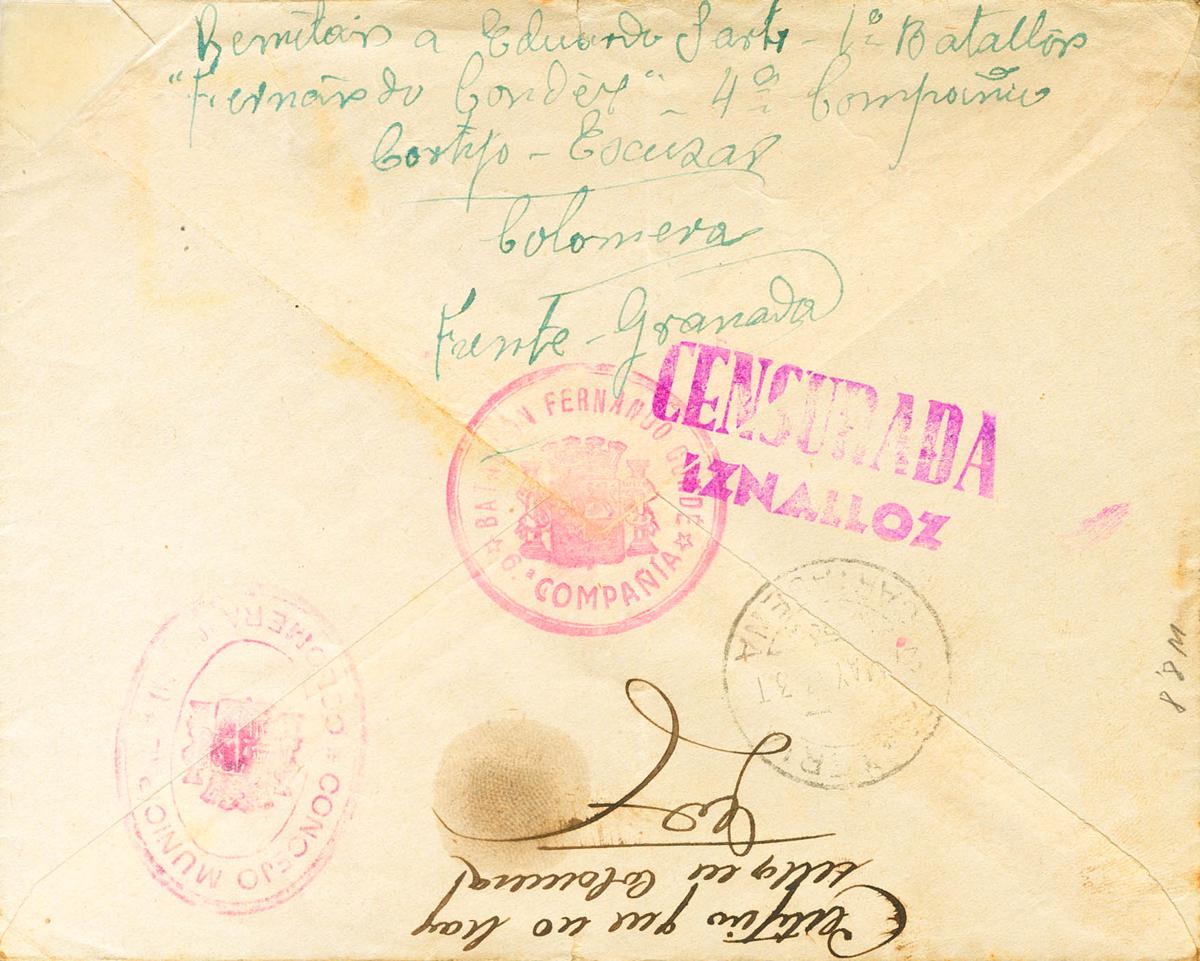 Remitais a Eduardo Sarti - 1º Batallón
"Fernándo Condés" - 4ª Compañia
Cortijo - Escuzar
Colomera
Frente - Granada
CENSURADA
IZNALLOZ
BATALLÓN FERNANDO CONDÉ
6.ª COMPAÑIA
CARTAGENA
CONCEJO MUNIC
COLOMERA
8'8M
Certifico que no hay
sellos en Colomera